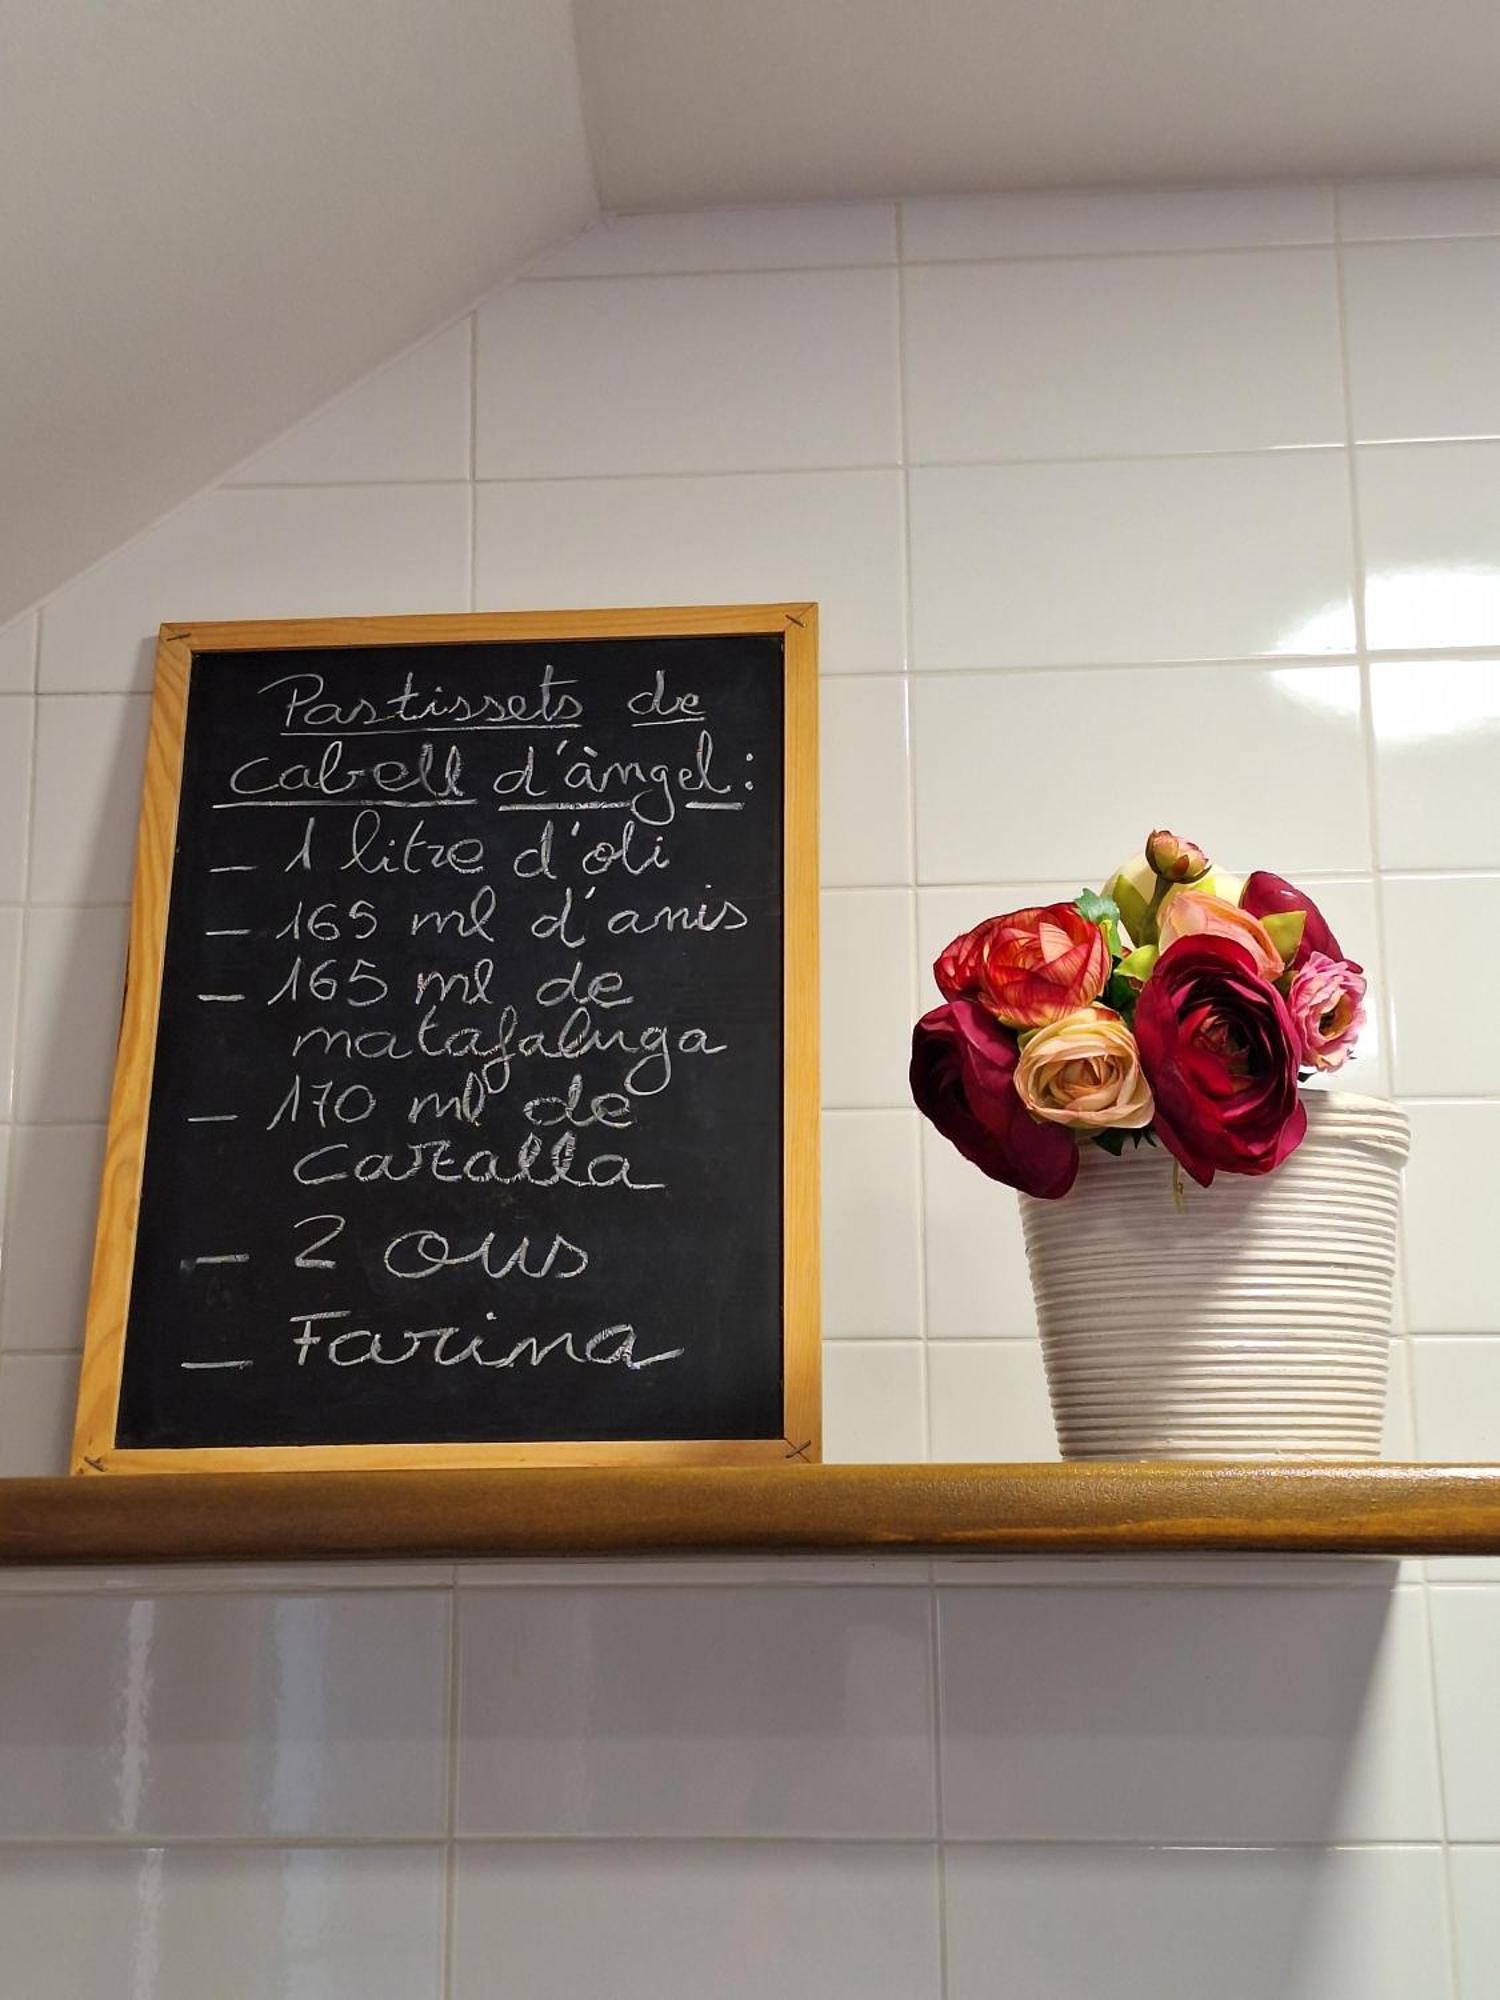 Pastissets de
cabell d'àngel:
- 1 litre d'oli
- 165 ml d'anis
- 165 ml de
matafaluga
- 170 ml de
cazalla
- 2 ous
- Farina